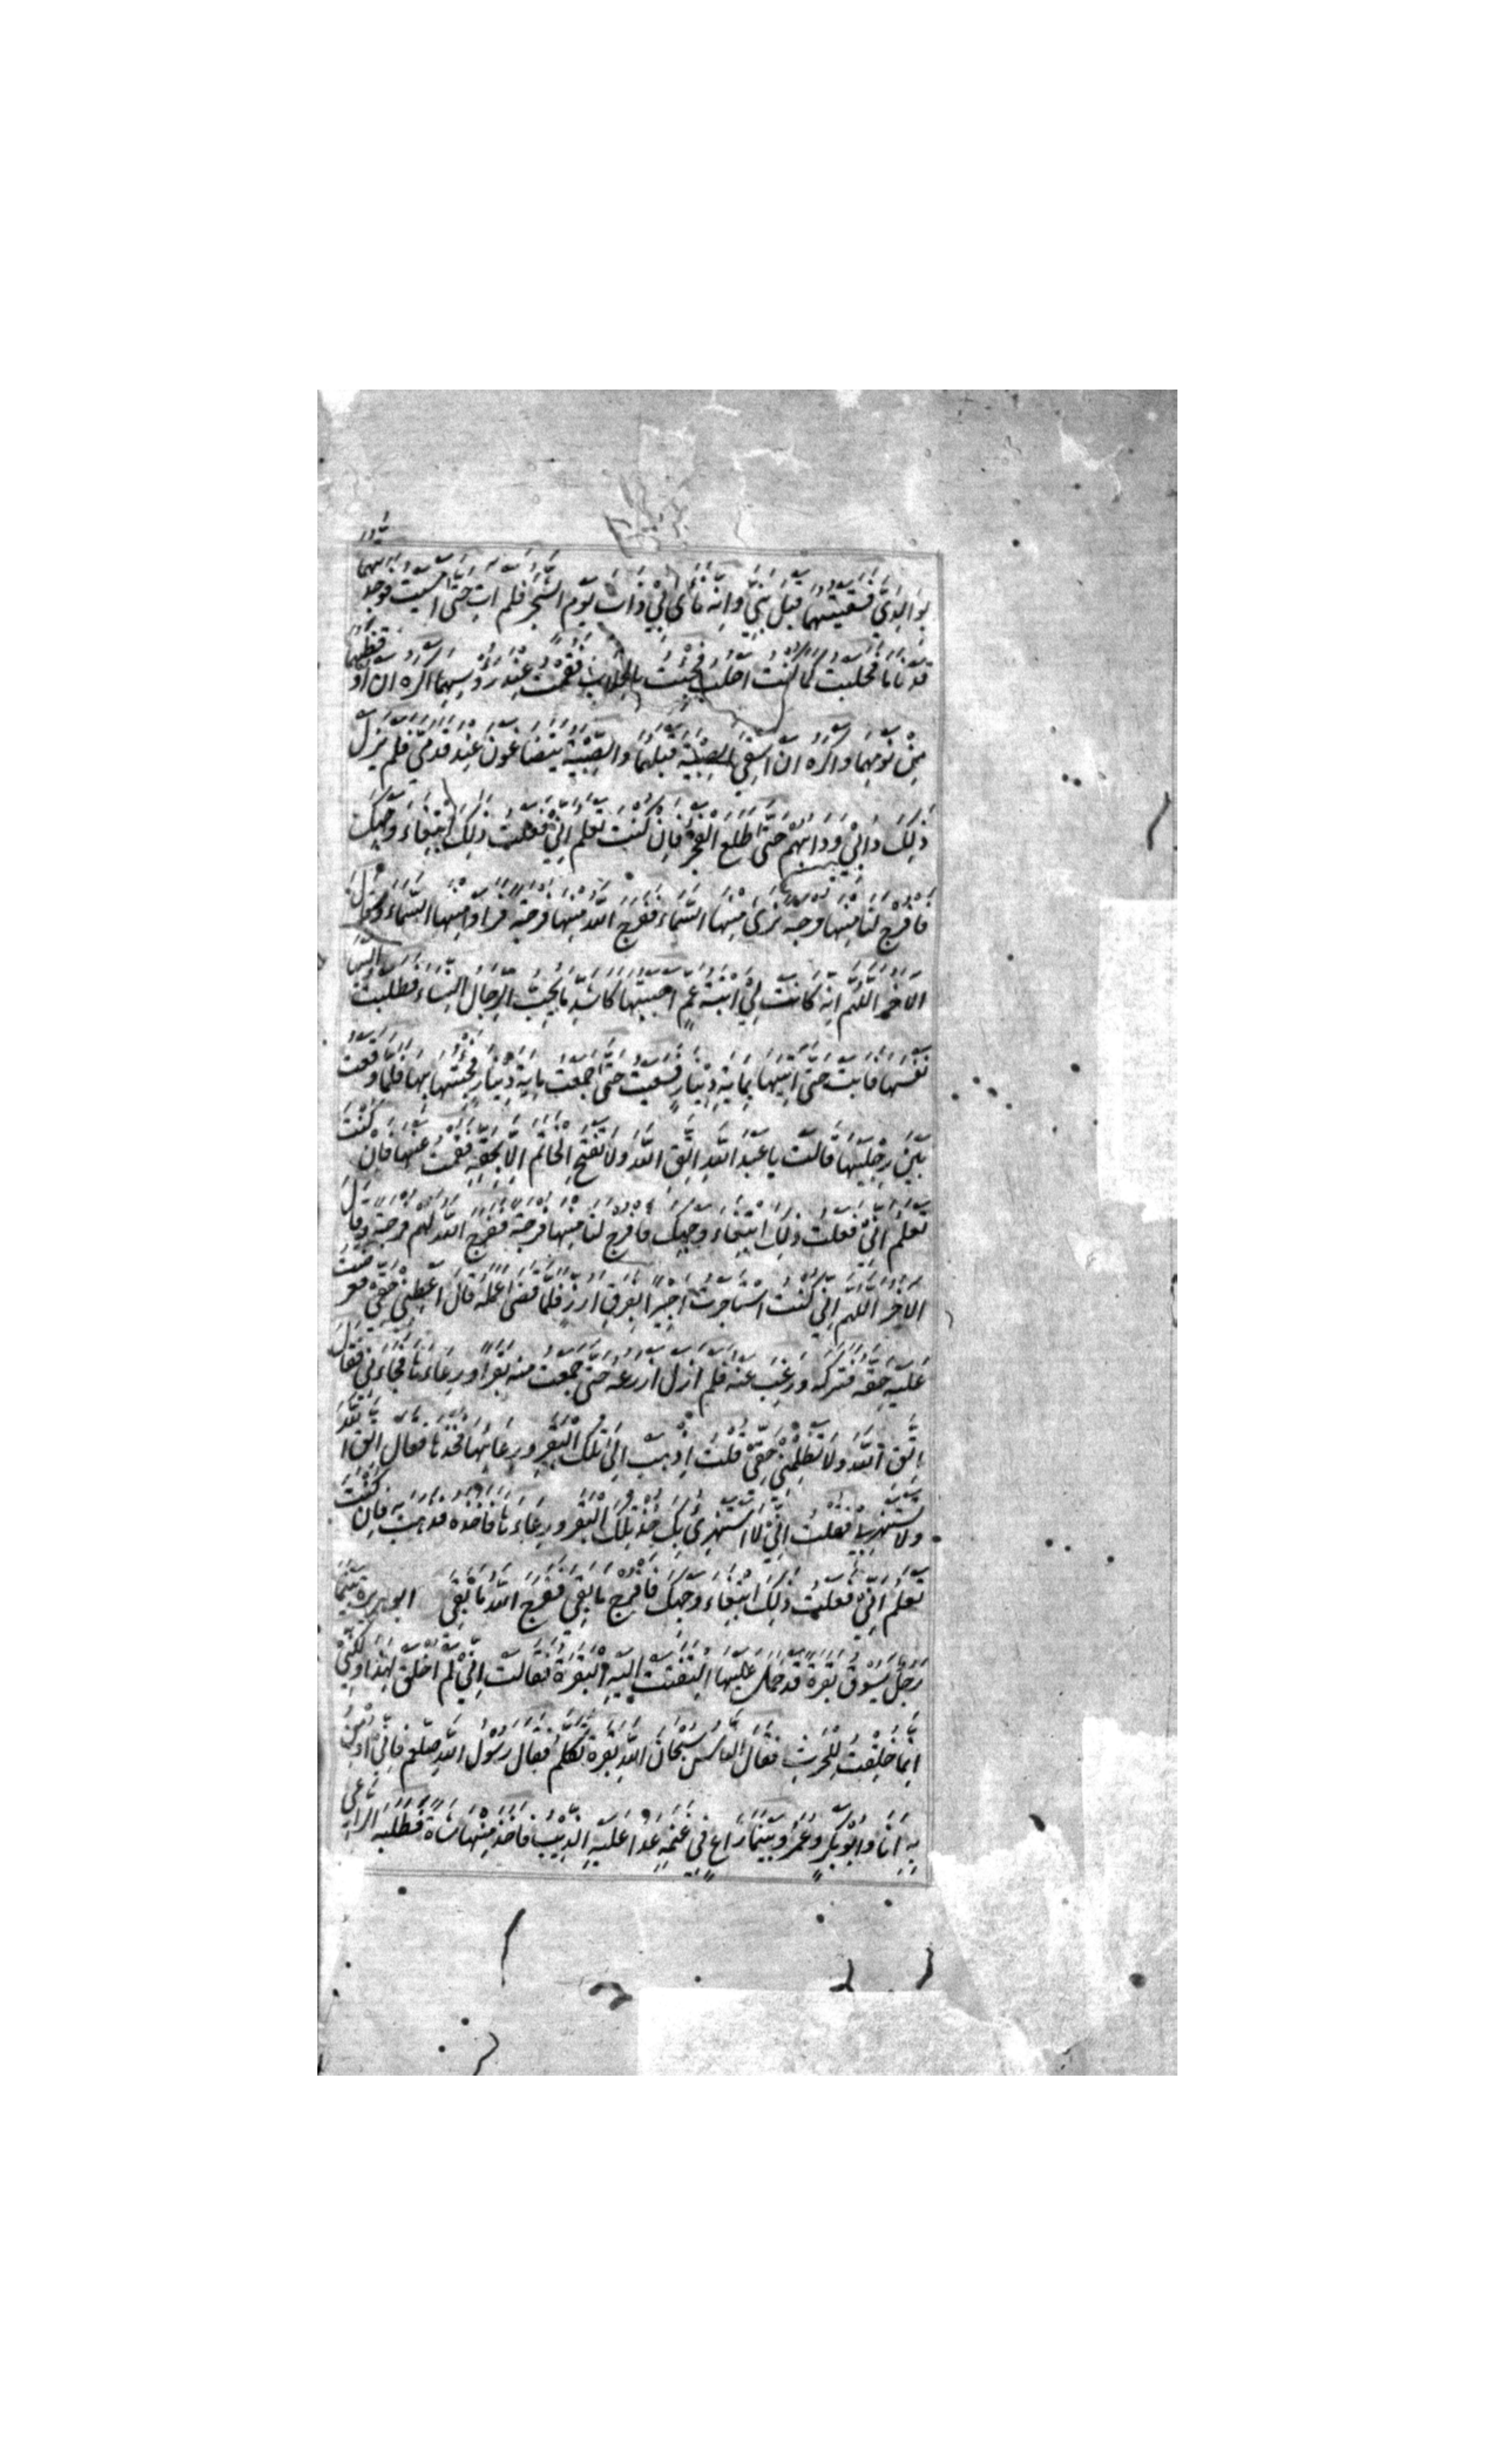 بوالدي فسقيتهما قبل بني وانه نأى بي ذات يوم الشجر فلم ات حتى امسيت فوجدتهما
قد ناما فحلبت كما كنت احلب فجئت بالحلاب فقمت عند رؤسهما اكره ان اوقظهما
من نومهما واكره ان اسقي الصبية قبلهما والصبية يتضاغون عند قدمي فلم يزل
ذلك دابي ودابهم حتى طلع الفجر فان كنت تعلم اني فعلت ذلك ابتغاء وجهك
فافرج لنا منها فرجة نرى منها السماء ففرج الله منها فرجة فراوا منها السماء وقال
الاخر اللهم انه كانت لي ابنة عم احببتها كاشد ما يحب الرجال النساء فطلبت اليها
نفسها فابت حتى اتيتها بماية دينار فسعيت حتى جمعت ماية دينار فجئتها بها فلما وقعت
بين رجليها قالت يا عبد الله اتق الله ولا تفتح الخاتم الا بحقه فقمت عنها فان كنت
تعلم اني فعلت ذلك ابتغاء وجهك فافرج لنا منها فرجة ففرج الله لهم فرجة وقال
الاخر اللهم اني كنت استاجرت اجيرا بفرق ارز فلما قضى عمله قال اعطني حقي فعرضت
عليه حقه فتركه ورغب عنه فلم ازل ازرعه حتى جمعت منه بقرا ورعاءنا فجاءني فقال
اتق الله ولا تظلمني حقي قلت اذهب الى تلك البقر ورعائها فخذها فقال اتق الله
ولا تستهزئ بي فقلت اني لا استهزئ بك خذ تلك البقر ورعاءها فاخذه فذهب به فان كنت
تعلم اني فعلت ذلك ابتغاء وجهك فافرج ما بقي ففرج الله ما بقي ابو هريرة بينما
رجل يسوق بقرة قد حمل عليها التفتت اليه البقرة فقالت اني لم اخلق لهذا ولكني
انما خلقت للحرث فقال الناس سبحان الله بقرة تكلم فقال رسول الله صلعم فاني اومن
به انا وابو بكر وعمر وبينما راع في غنمه عدا عليه الذئب فاخذ منها شاة فطلبه الراعي